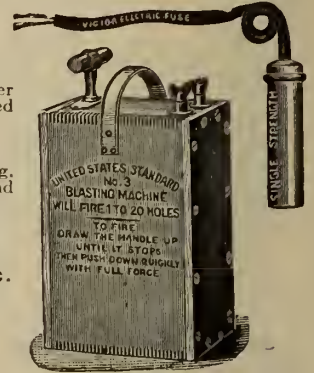 VICTOR ELECTRIC FUSE
er
ed
SINGLE STRENGTH
g.
nd
e.
UNITED STATES STANDARD
No. 3
BLASTING MACHINE
WILL FIRE 1 TO 20 HOLES
TO FIRE
DRAW THE HANDLE UP
UNTIL IT STOPS
THEN PUSH DOWN QUICKLY
WITH FULL FORCE